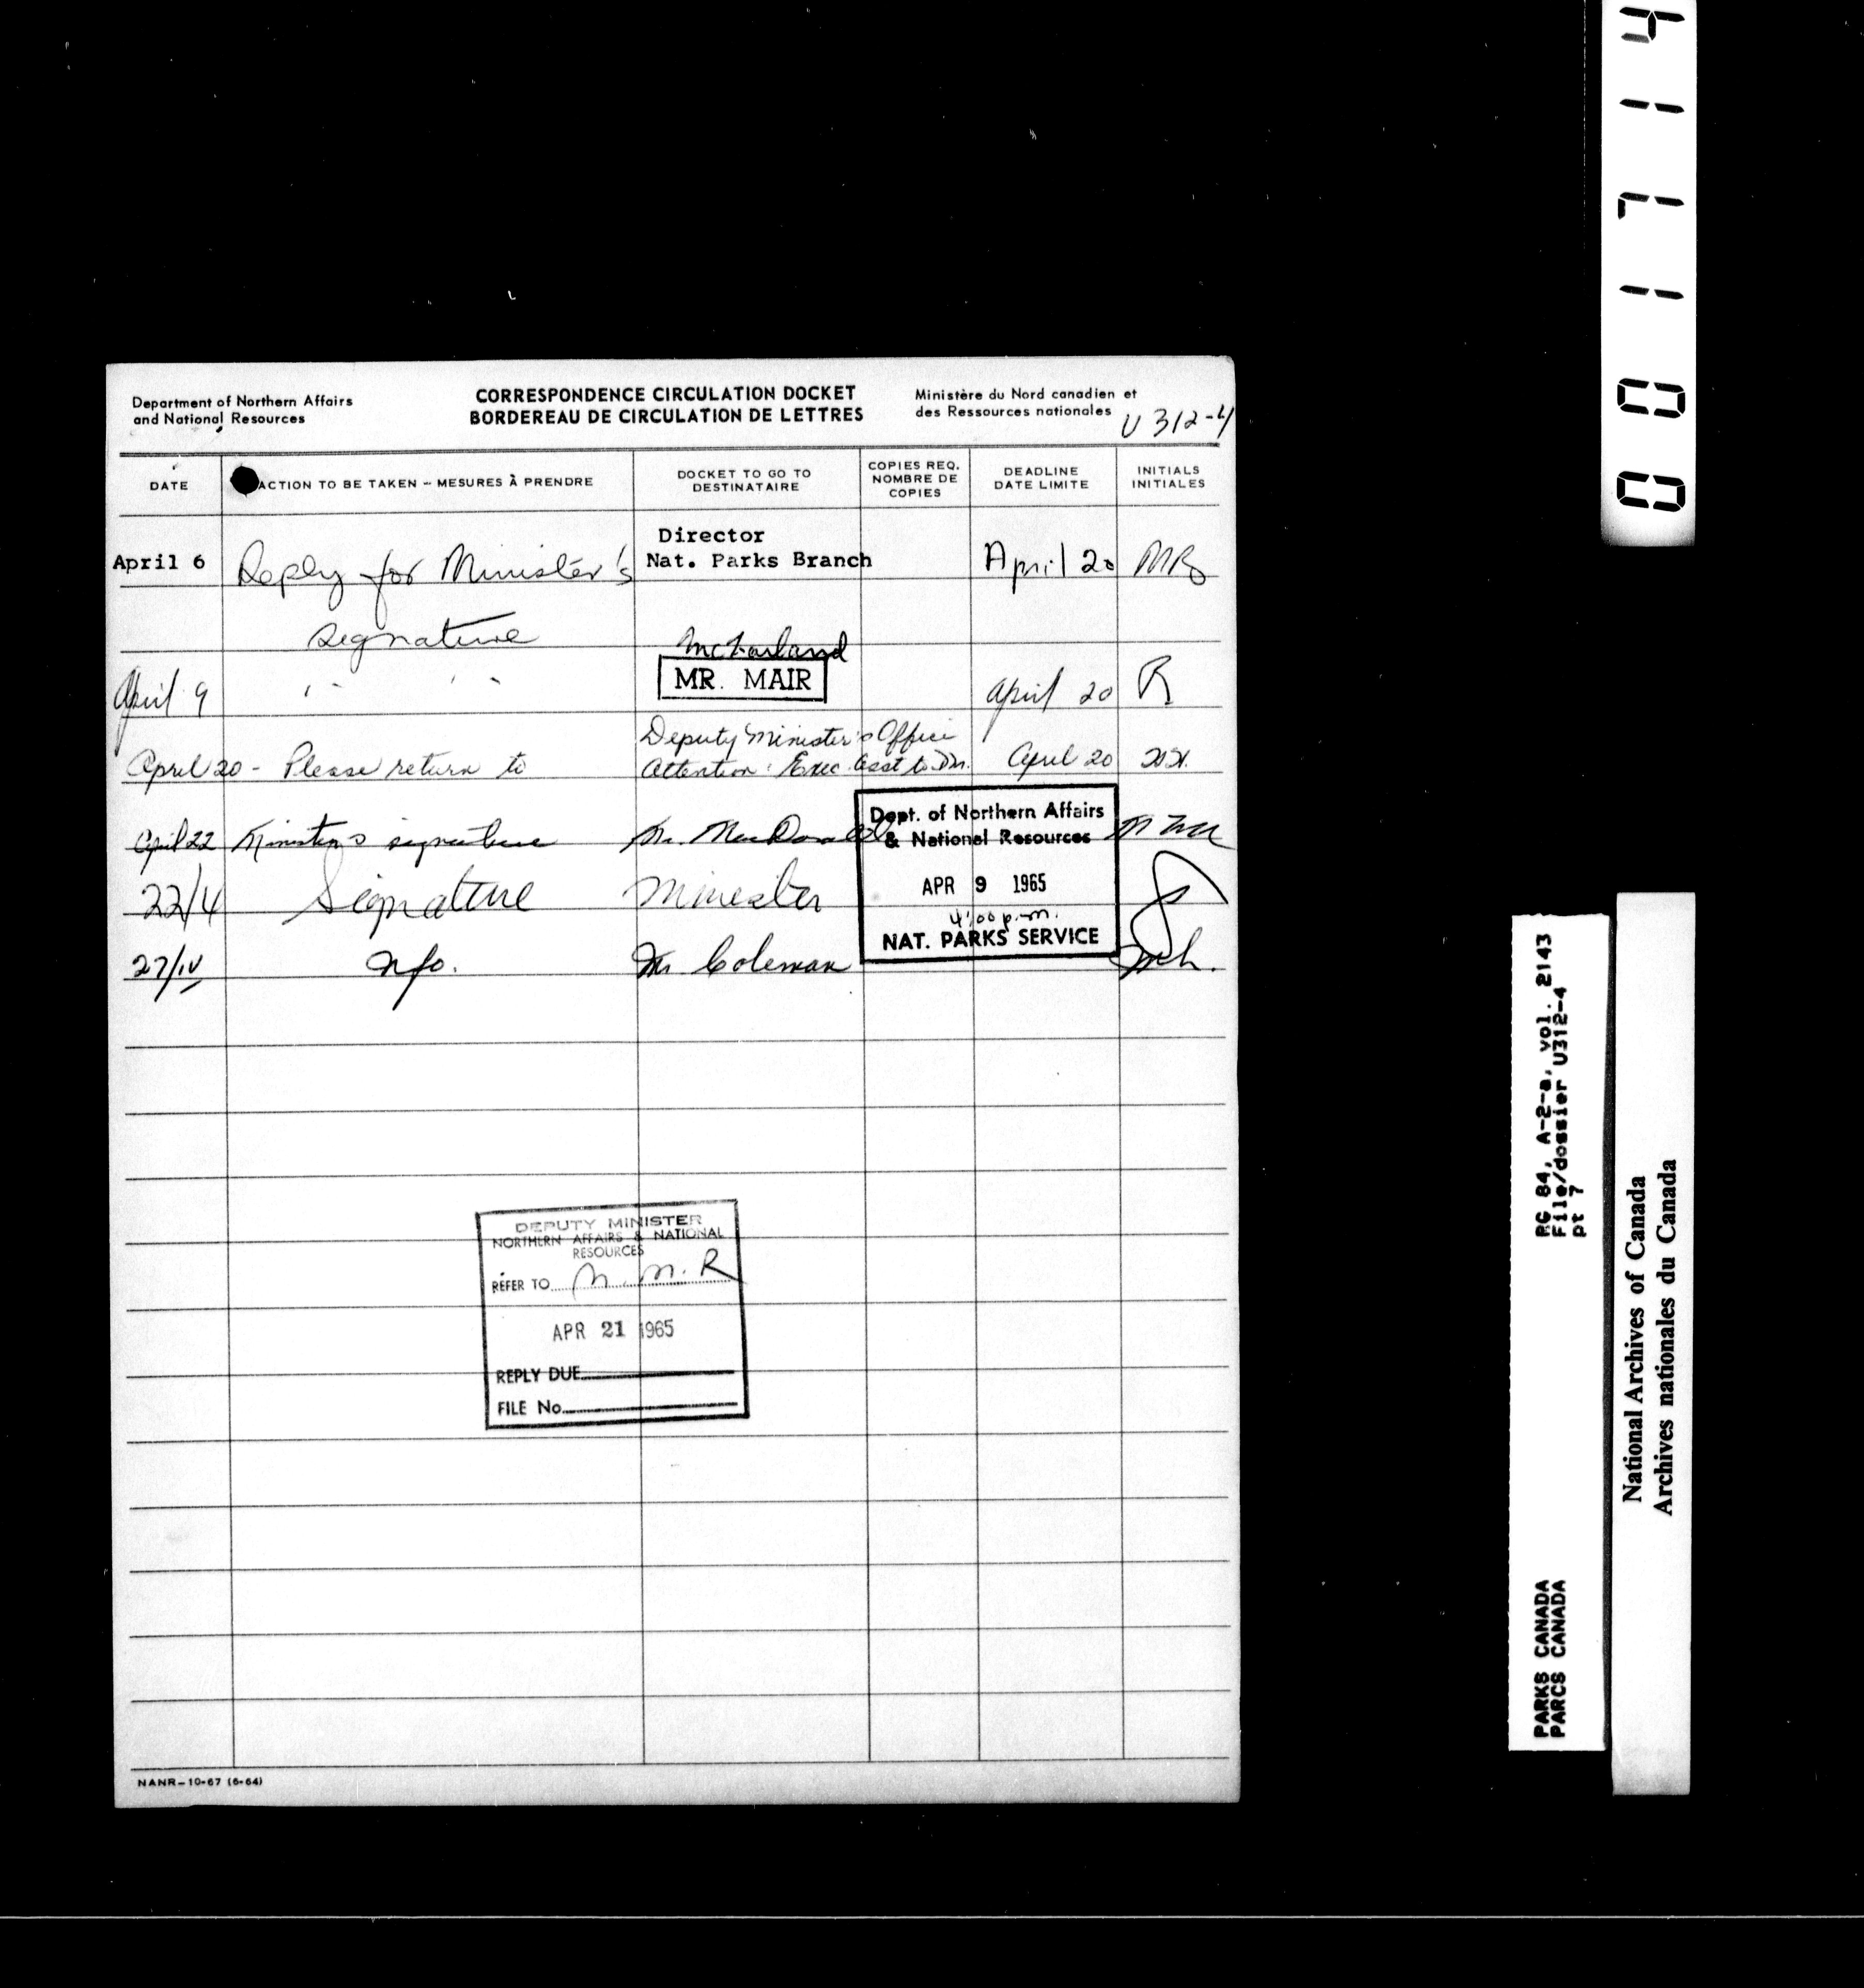 Department of Northern Affairs
and National Resources
CORRESPONDENCE CIRCULATION DOCKET
BORDEREAU DE CIRCULATION DE LETTRES
Ministère du Nord canadien et
des Ressources nationales
U 312-4
DATE
ACTION TO BE TAKEN – MESURES À PRENDRE
DOCKET TO GO TO
DESTINATAIRE
COPIES REQ.
NOMBRE DE
COPIES
DEADLINE
DATE LIMITE
INITIALS
INITIALES
April 6 Reply for Minister's
signature
Director
Nat. Parks Branch
April 20
McFarland
April 9
" "
MR. MAIR
April 20 R
April 20 - Please return to
Deputy Minister's Office
Attention: Exec. Asst to Dm.
April 20
April 22 Minister's signature Mr. MacDonald
22/4 Signature Minister
27/IV Mr Coleman
Dept. of Northern Affairs
& National Resources
APR 9 1965
4:00 p.m.
NAT. PARKS SERVICE
DEPUTY MINISTER
NORTHERN AFFAIRS & NATIONAL
RESOURCES
REFER TO M.M.R
APR 21 1965
REPLY DUE
FILE No.
NANR-10-67 (6-64)
0011714
RG 84, A-2-a, vol. 2143
File/dossier U312-4
pt 7
PARKS CANADA
PARCS CANADA
National Archives of Canada
Archives nationales du Canada